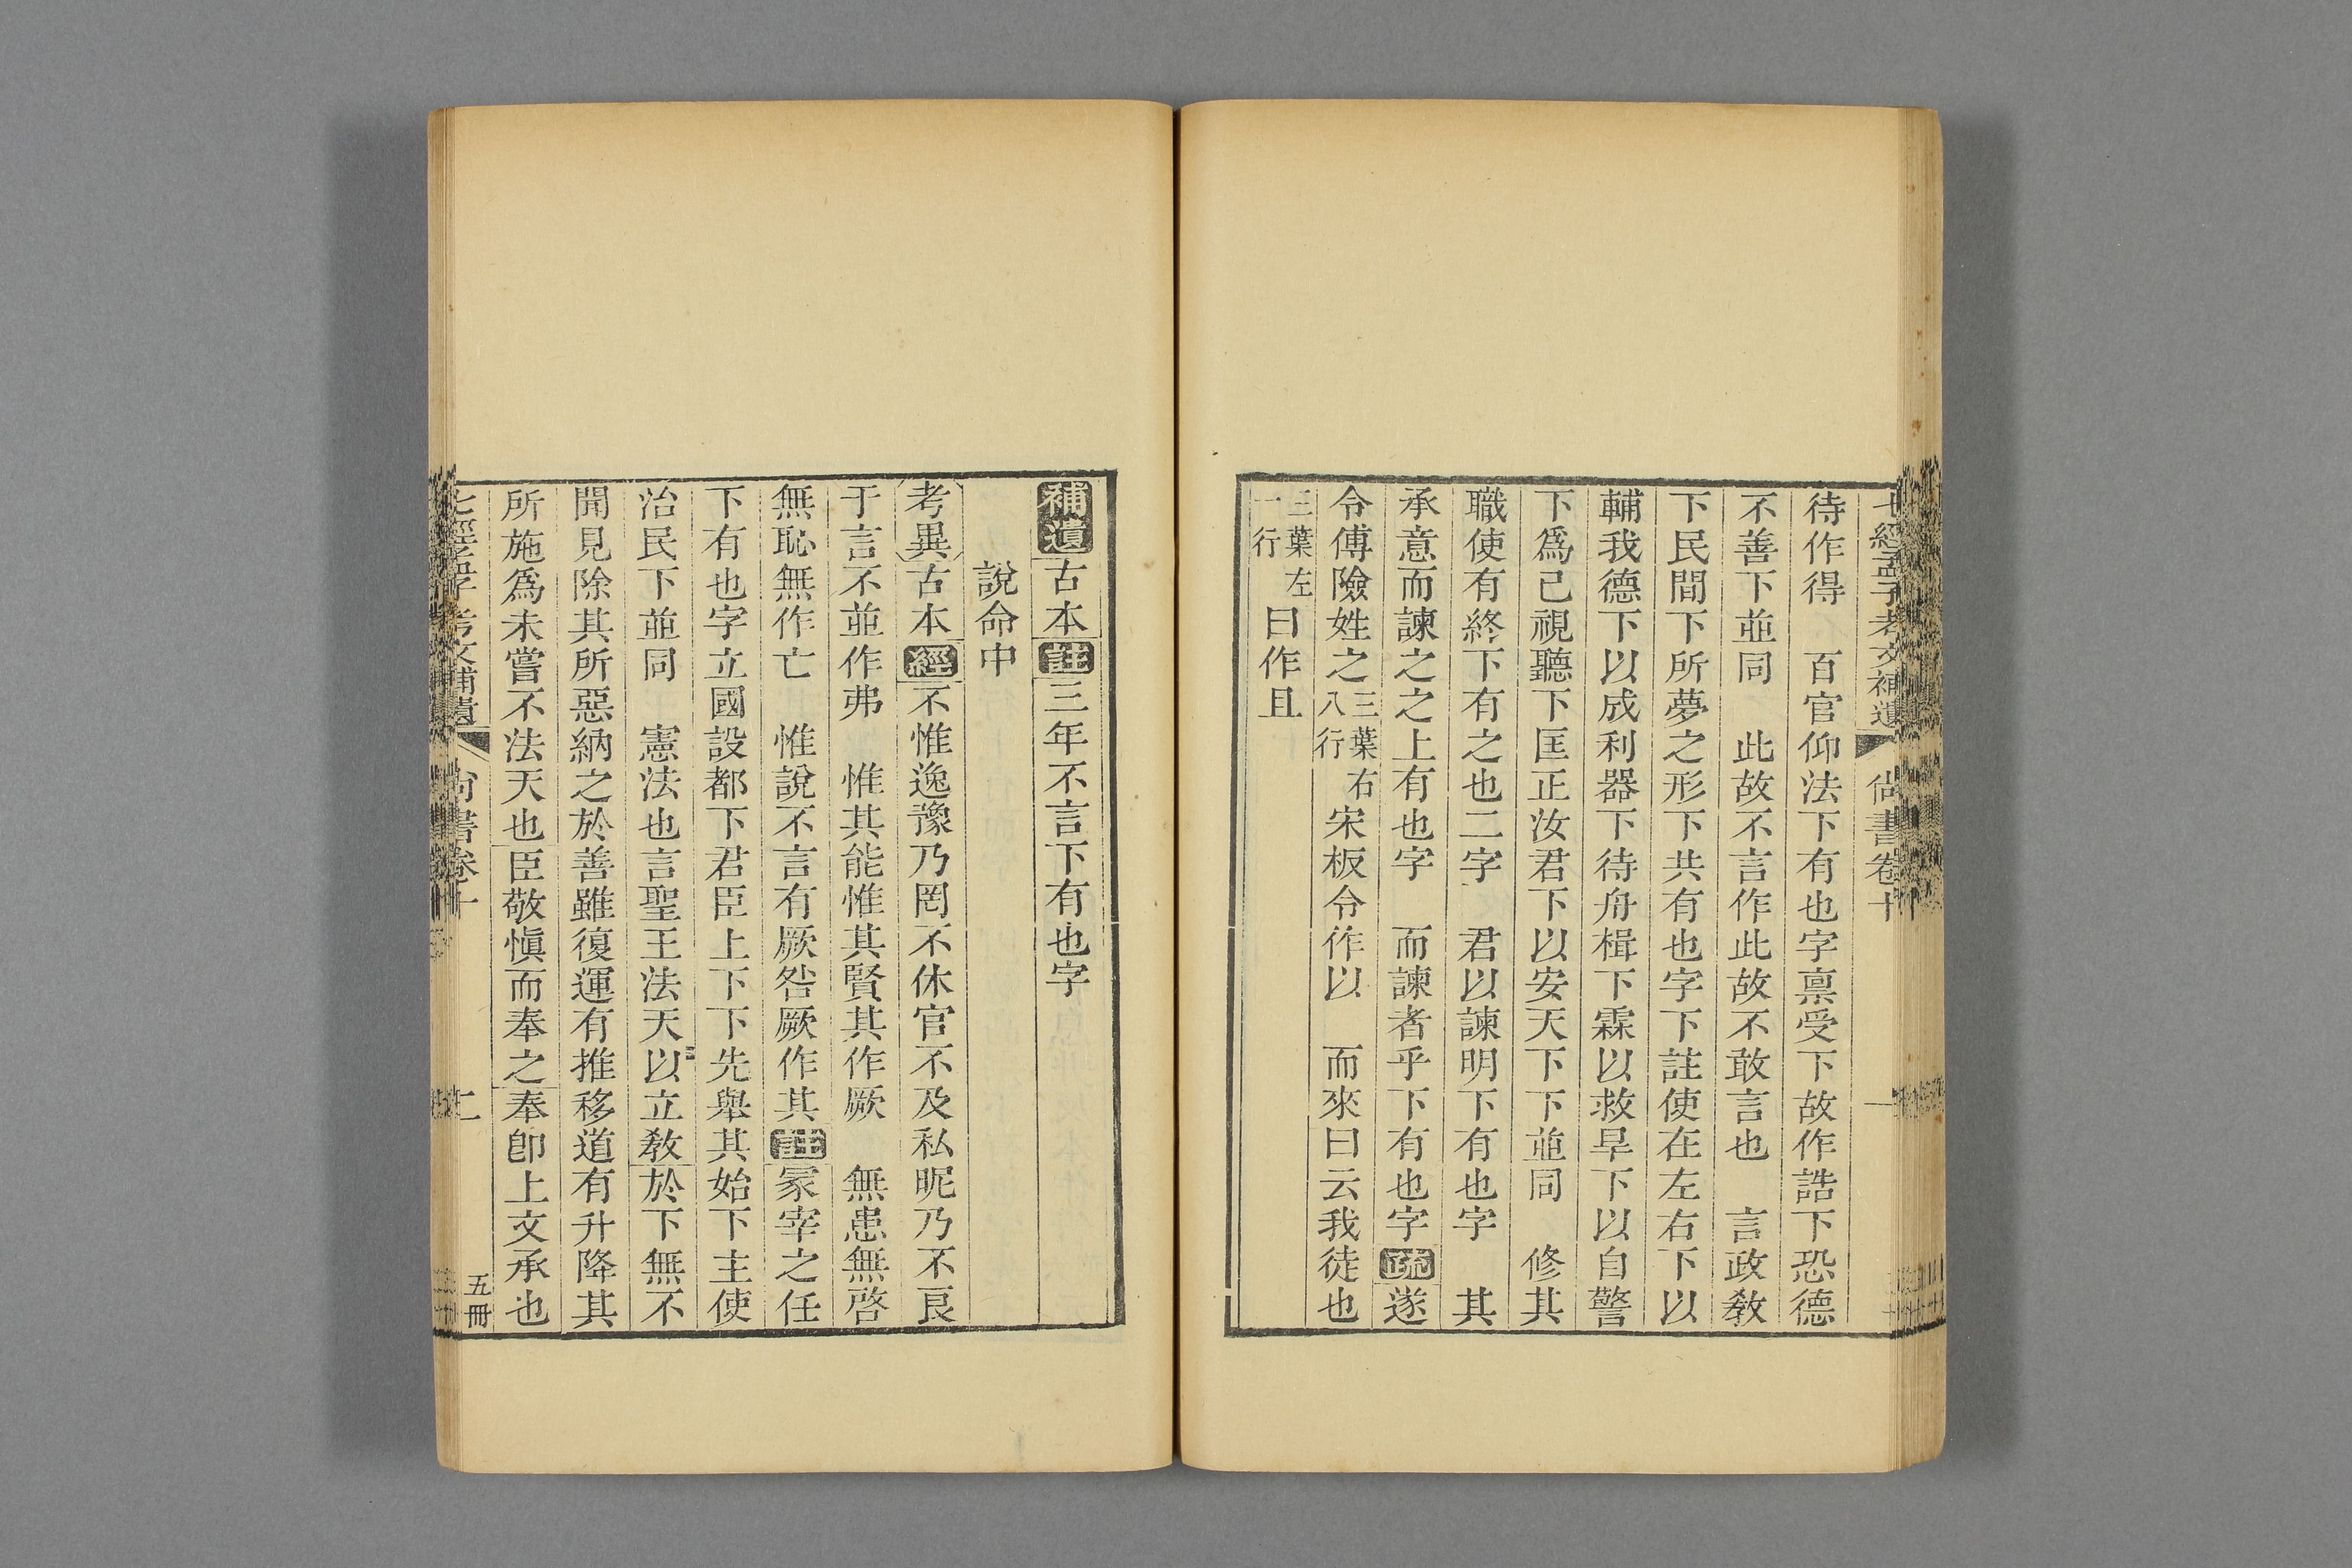 七經孟子考文補遺 尚書卷十 一
待作得 百官仰法下有也字禀受下故作誥下恐德
不善下並同 此故不言作此故不敢言也 言政敎
下民間下所夢之形下共有也字下註使在左右下以
輔我德下以成利器下待舟楫下霖以救旱下以自警
下爲己視聽下匡正汝君下以安天下下並同 修其
職使有終下有之也二字 君以諫明下有也字 其
承意而諫之之上有也字 而諫者乎下有也字疏遂
令傅險姓之三葉右八行宋板令作以 而來曰云我徒也
三葉左一行曰作且
補遺古本註三年不言下有也字
說命中
考異古本經不惟逸豫乃罔不休官不及私昵乃不良
于言不並作弗 惟其能惟其賢其作厥 無患無啓
無恥無作亡 惟說不言有厥咎厥作其註冢宰之任
下有也字立國設都下君臣上下下先舉其始下主使
治民下並同 憲法也言聖王法天以立敎於下無不
聞見除其所惡納之於善雖復運有推移道有升降其
所施爲未嘗不法天也臣敬愼而奉之奉卽上文承也
七經孟子考文補遺 尚書卷十 二 五冊